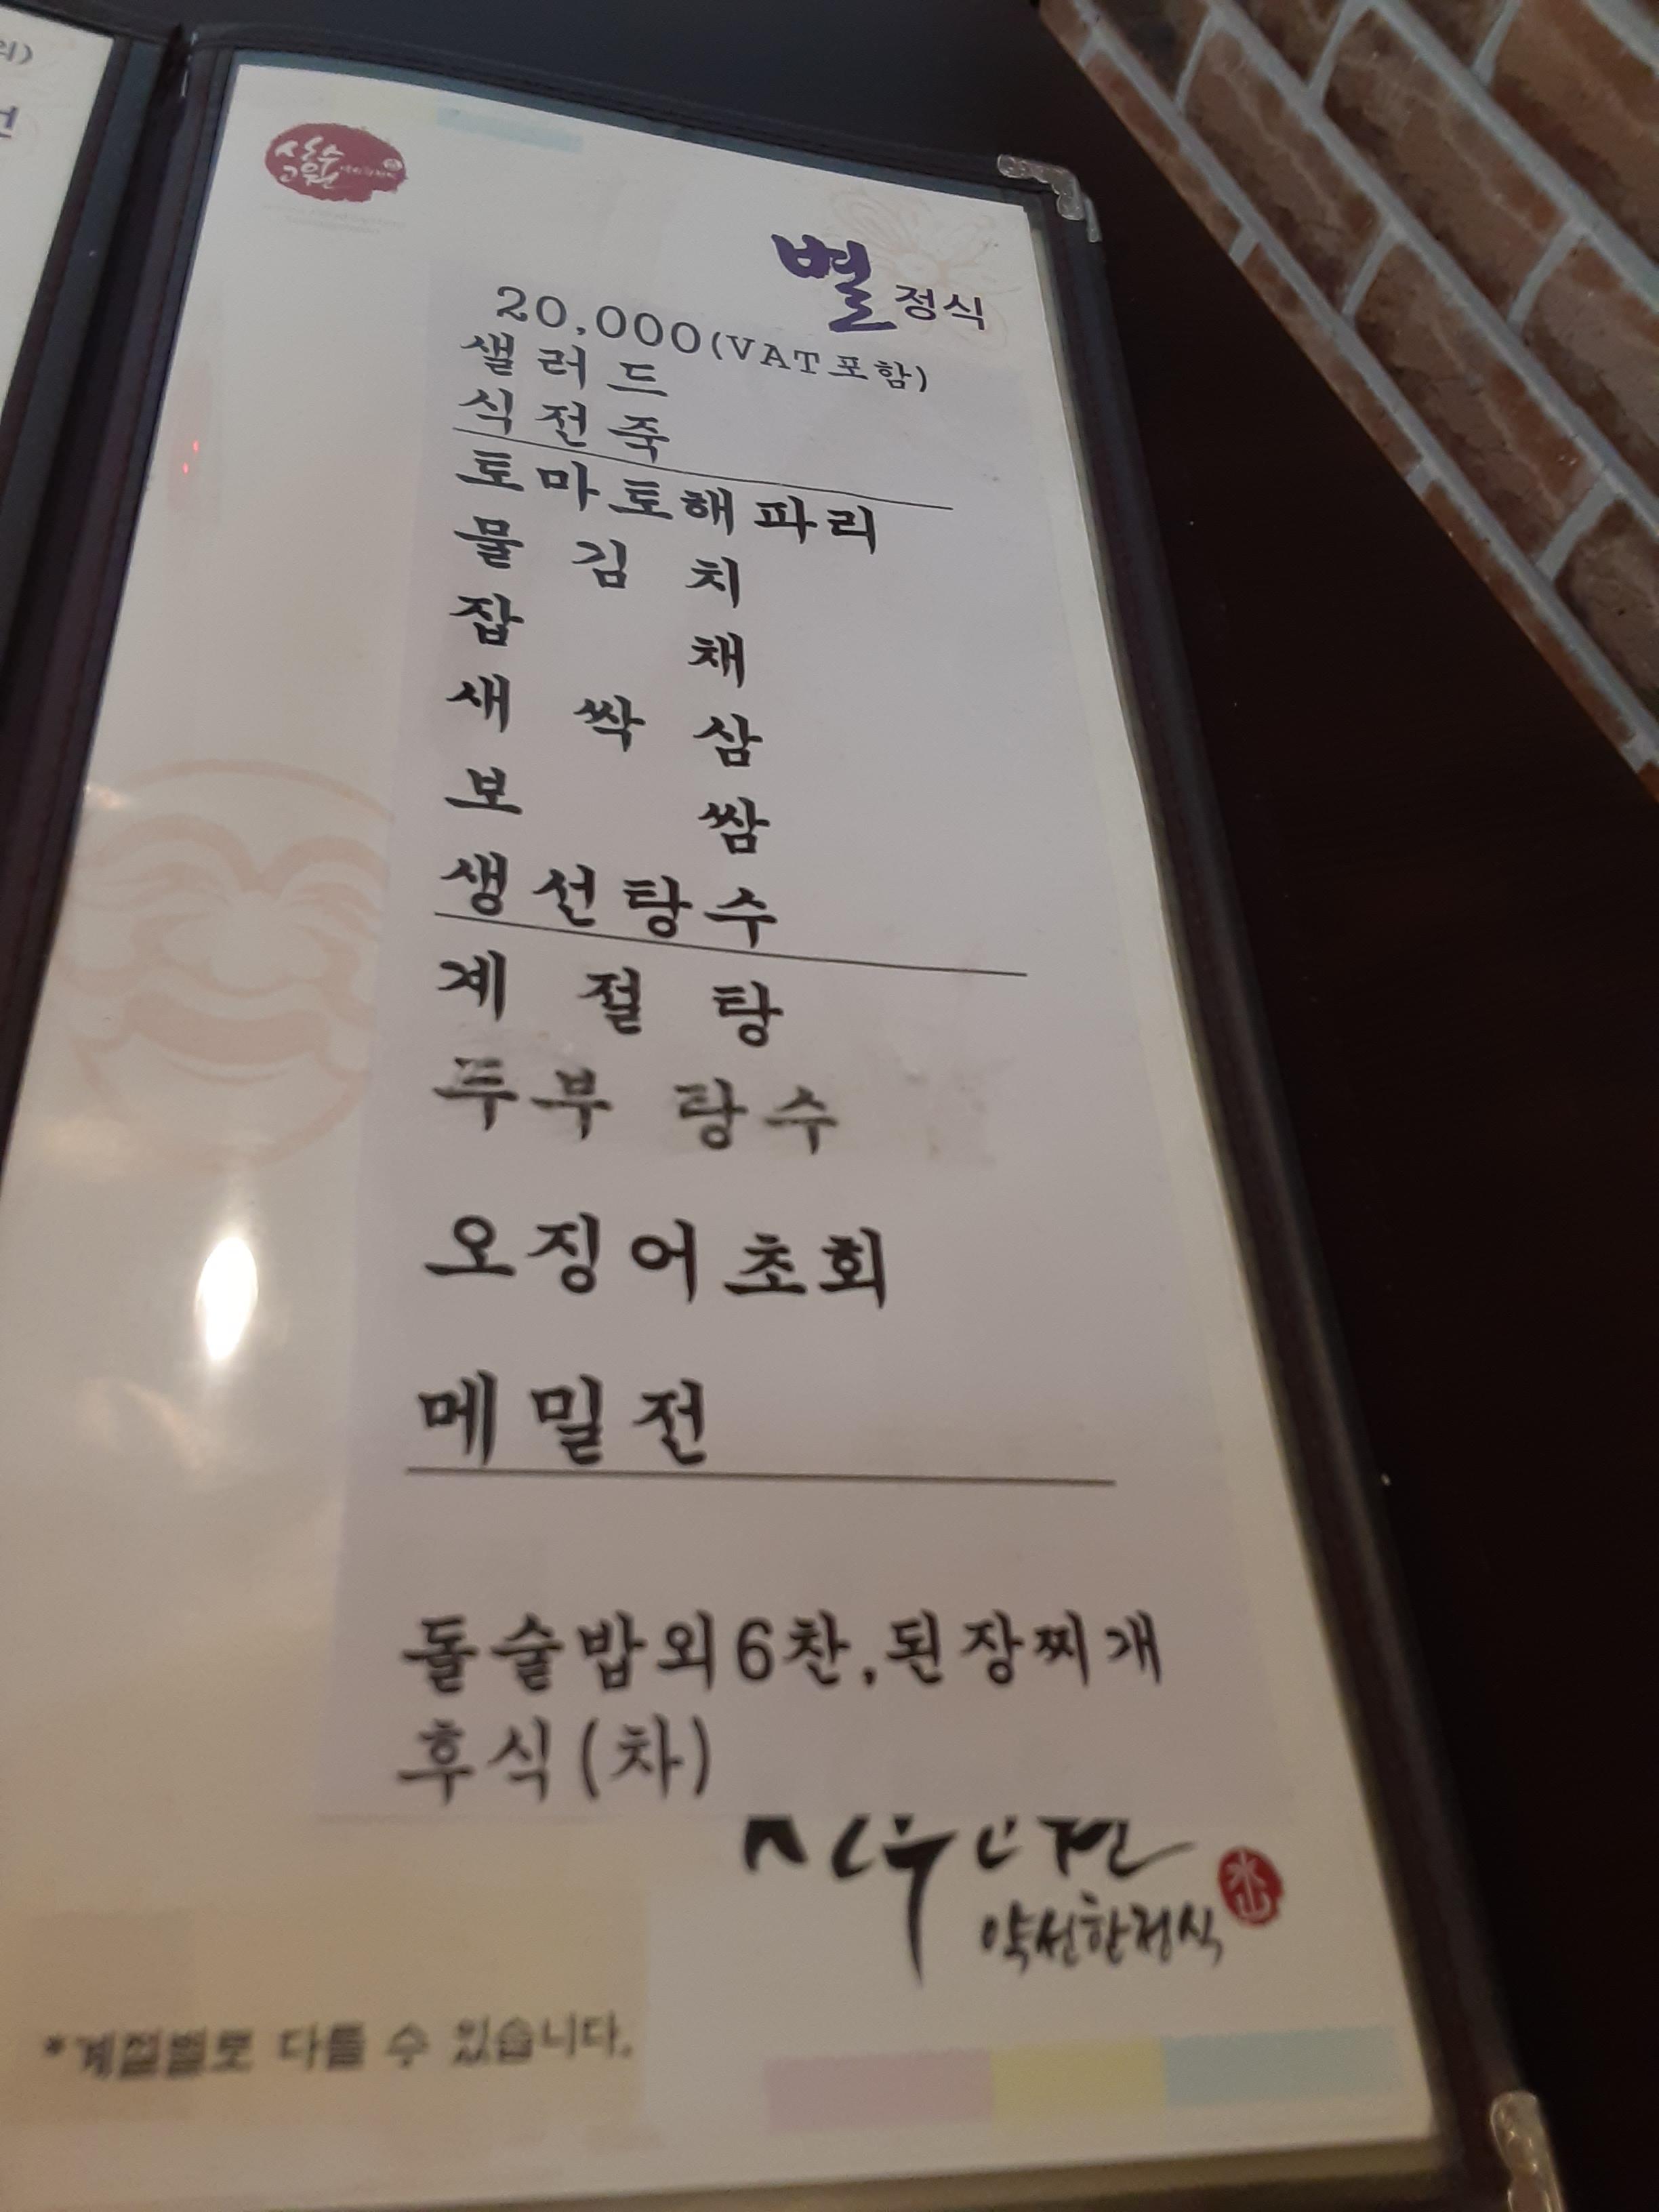 별정식
20,000(VAT포함)
샐러드
식전죽
토마토해파리
물김치
잡채
새싹삼
보쌈
생선탕수
계절탕
두부탕수
오징어초회
메밀전
돌솥밥외6찬,된장찌개
후식(차)
약선한정식
*계절별로 다를 수 있습니다.